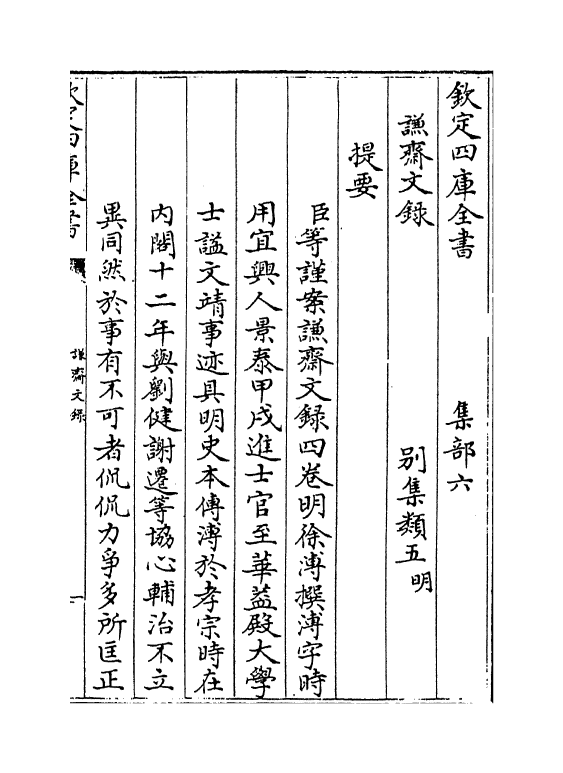 欽定四庫全書　集部六
謙齋文録　别集類五明
提要
臣等謹案謙齋文録四卷明徐溥撰溥字時
用宜興人景泰甲戌進士官至華葢殿大學
士諡文靖事迹具明史本傳溥於孝宗時在
内閣十二年與劉健謝遷等協心輔治不立
異同然於事有不可者侃侃力爭多所匡正
欽定四庫全書
謙齋文録
一